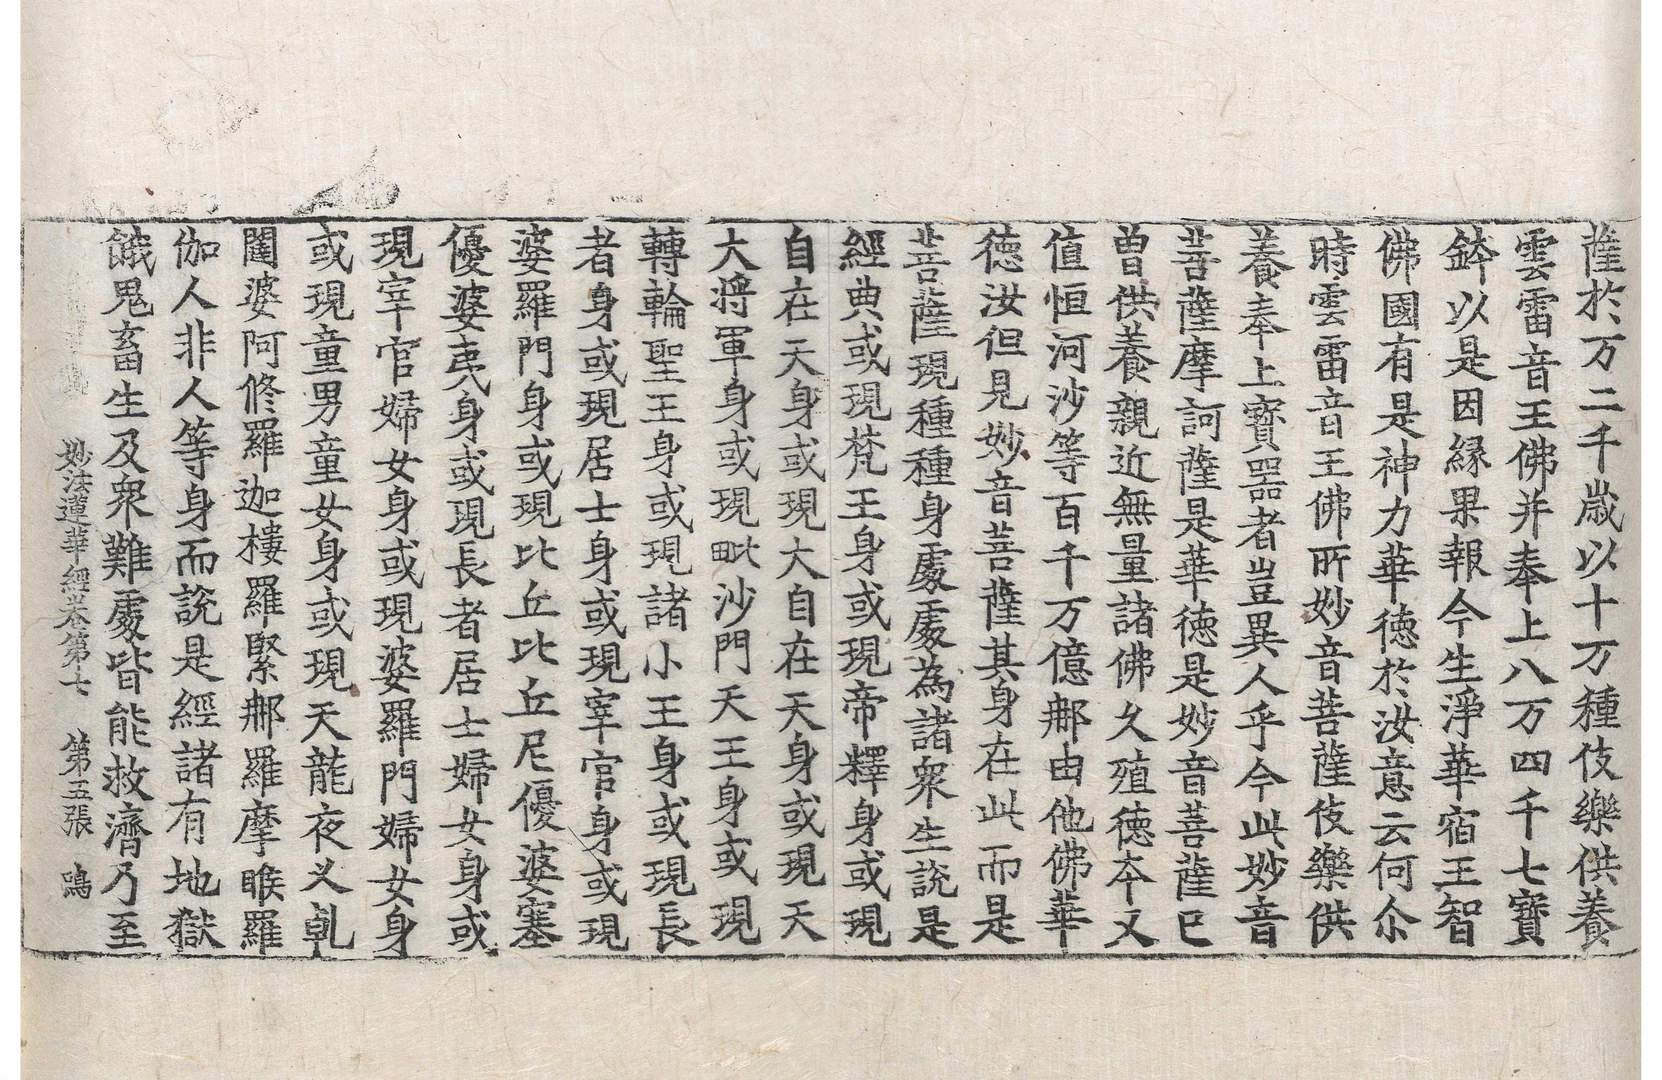 薩於万二千歳以十万種伎樂供養
雲雷音王佛并奉上八万四千七寶
鉢以是因縁果報今生淨華宿王智
佛國有是神力華徳於汝意云何尒
時雲雷音王佛所妙音菩薩伎樂供
養奉上寶器者豈異人乎今此妙音
菩薩摩訶薩是華徳是妙音菩薩已
曽供養親近無量諸佛久殖徳夲又
值恒河沙等百千万億那由他佛華
徳汝但見妙音菩薩其身在此而是
菩薩現種種身處處為諸衆生説是
經典或現梵王身或現帝釋身或現
自在天身或現大自在天身或現天
大將軍身或現毗沙門天王身或現
轉輪聖王身或現諸小王身或現長
者身或現居士身或現宰官身或現
婆羅門身或現比丘比丘尼優婆塞
優婆夷身或現長者居士婦女身或
現宰官婦女身或現婆羅門婦女身
或現童男童女身或現天龍夜叉乹
闥婆阿修羅迦樓羅緊那羅摩睺羅
伽人非人等身而説是經諸有地獄
餓鬼畜生及衆難處皆能救濟乃至
妙法蓮華經卷第七 第五張 鳴